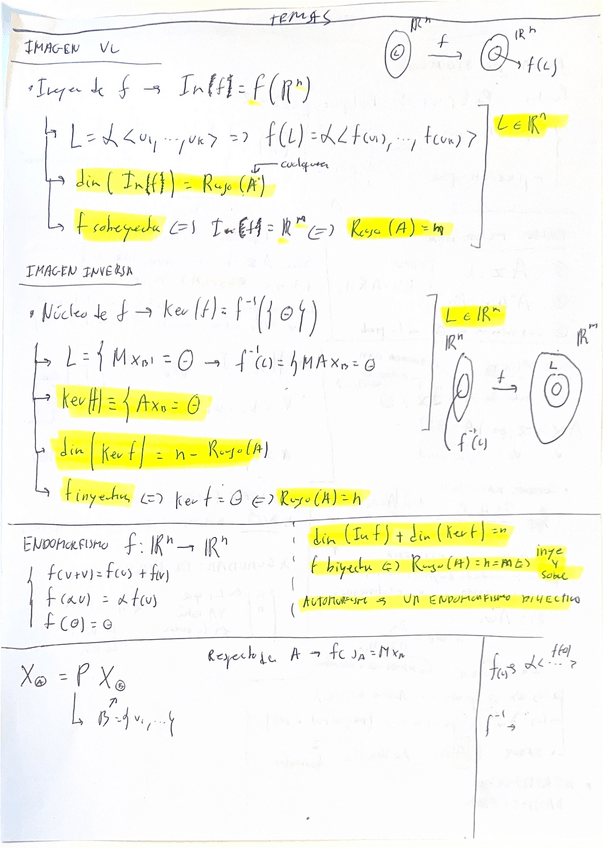 TEMAS
IMAGEN VL
ℝⁿ f ℝᵐ
L f(L)
• Imagen de f → Im{f} = f(ℝⁿ)
L = ℒ<v₁, ..., vₖ> => f(L) = ℒ<f(v₁), ..., f(vₖ)>
L ∈ ℝⁿ
cualquiera
dim(Im{f}) = Rango(A)
f sobreyectiva <=> Im{f} = ℝᵐ <=> Rango(A) = m
IMAGEN INVERSA
• Núcleo de f → Ker(f) = f⁻¹({θ})
L ∈ ℝᵐ
L = { M X_B' = θ → f⁻¹(L) = { MA X_B = θ
ℝⁿ f ℝᵐ
L
f⁻¹(L)
Ker(f) ≡ { A X_B = θ
dim(Ker f) = n - Rango(A)
f inyectiva <=> Ker f = θ <=> Rango(A) = n
ENDOMORFISMO f: ℝⁿ → ℝⁿ
f(u+v) = f(u) + f(v)
f(αu) = αf(u)
f(θ) = θ
dim(Im f) + dim(Ker f) = n
f biyectiva <=> Rango(A) = n = m <=> inye y sobre
AUTOMORFISMO → UN ENDOMORFISMO BIYECTIVO
Respecto de A → f( )_A = M X_A
X_A = P X_B
B = {v₁, ...}
ℒ< ... >
f⁻¹ →